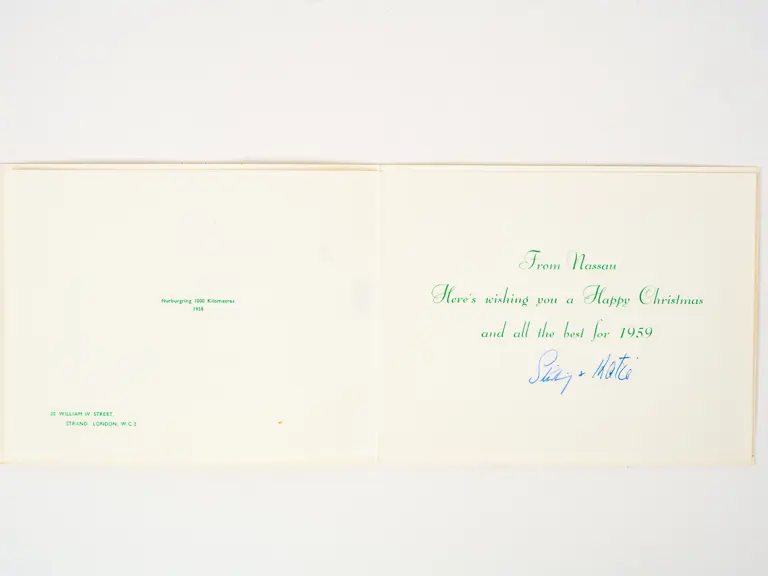 Nurburgring 1000 Kilometres
1958
20 WILLIAM IV STREET,
STRAND. LONDON, W.C.2
From Nassau
Here's wishing you a Happy Christmas
and all the best for 1959
Stirling + Katie